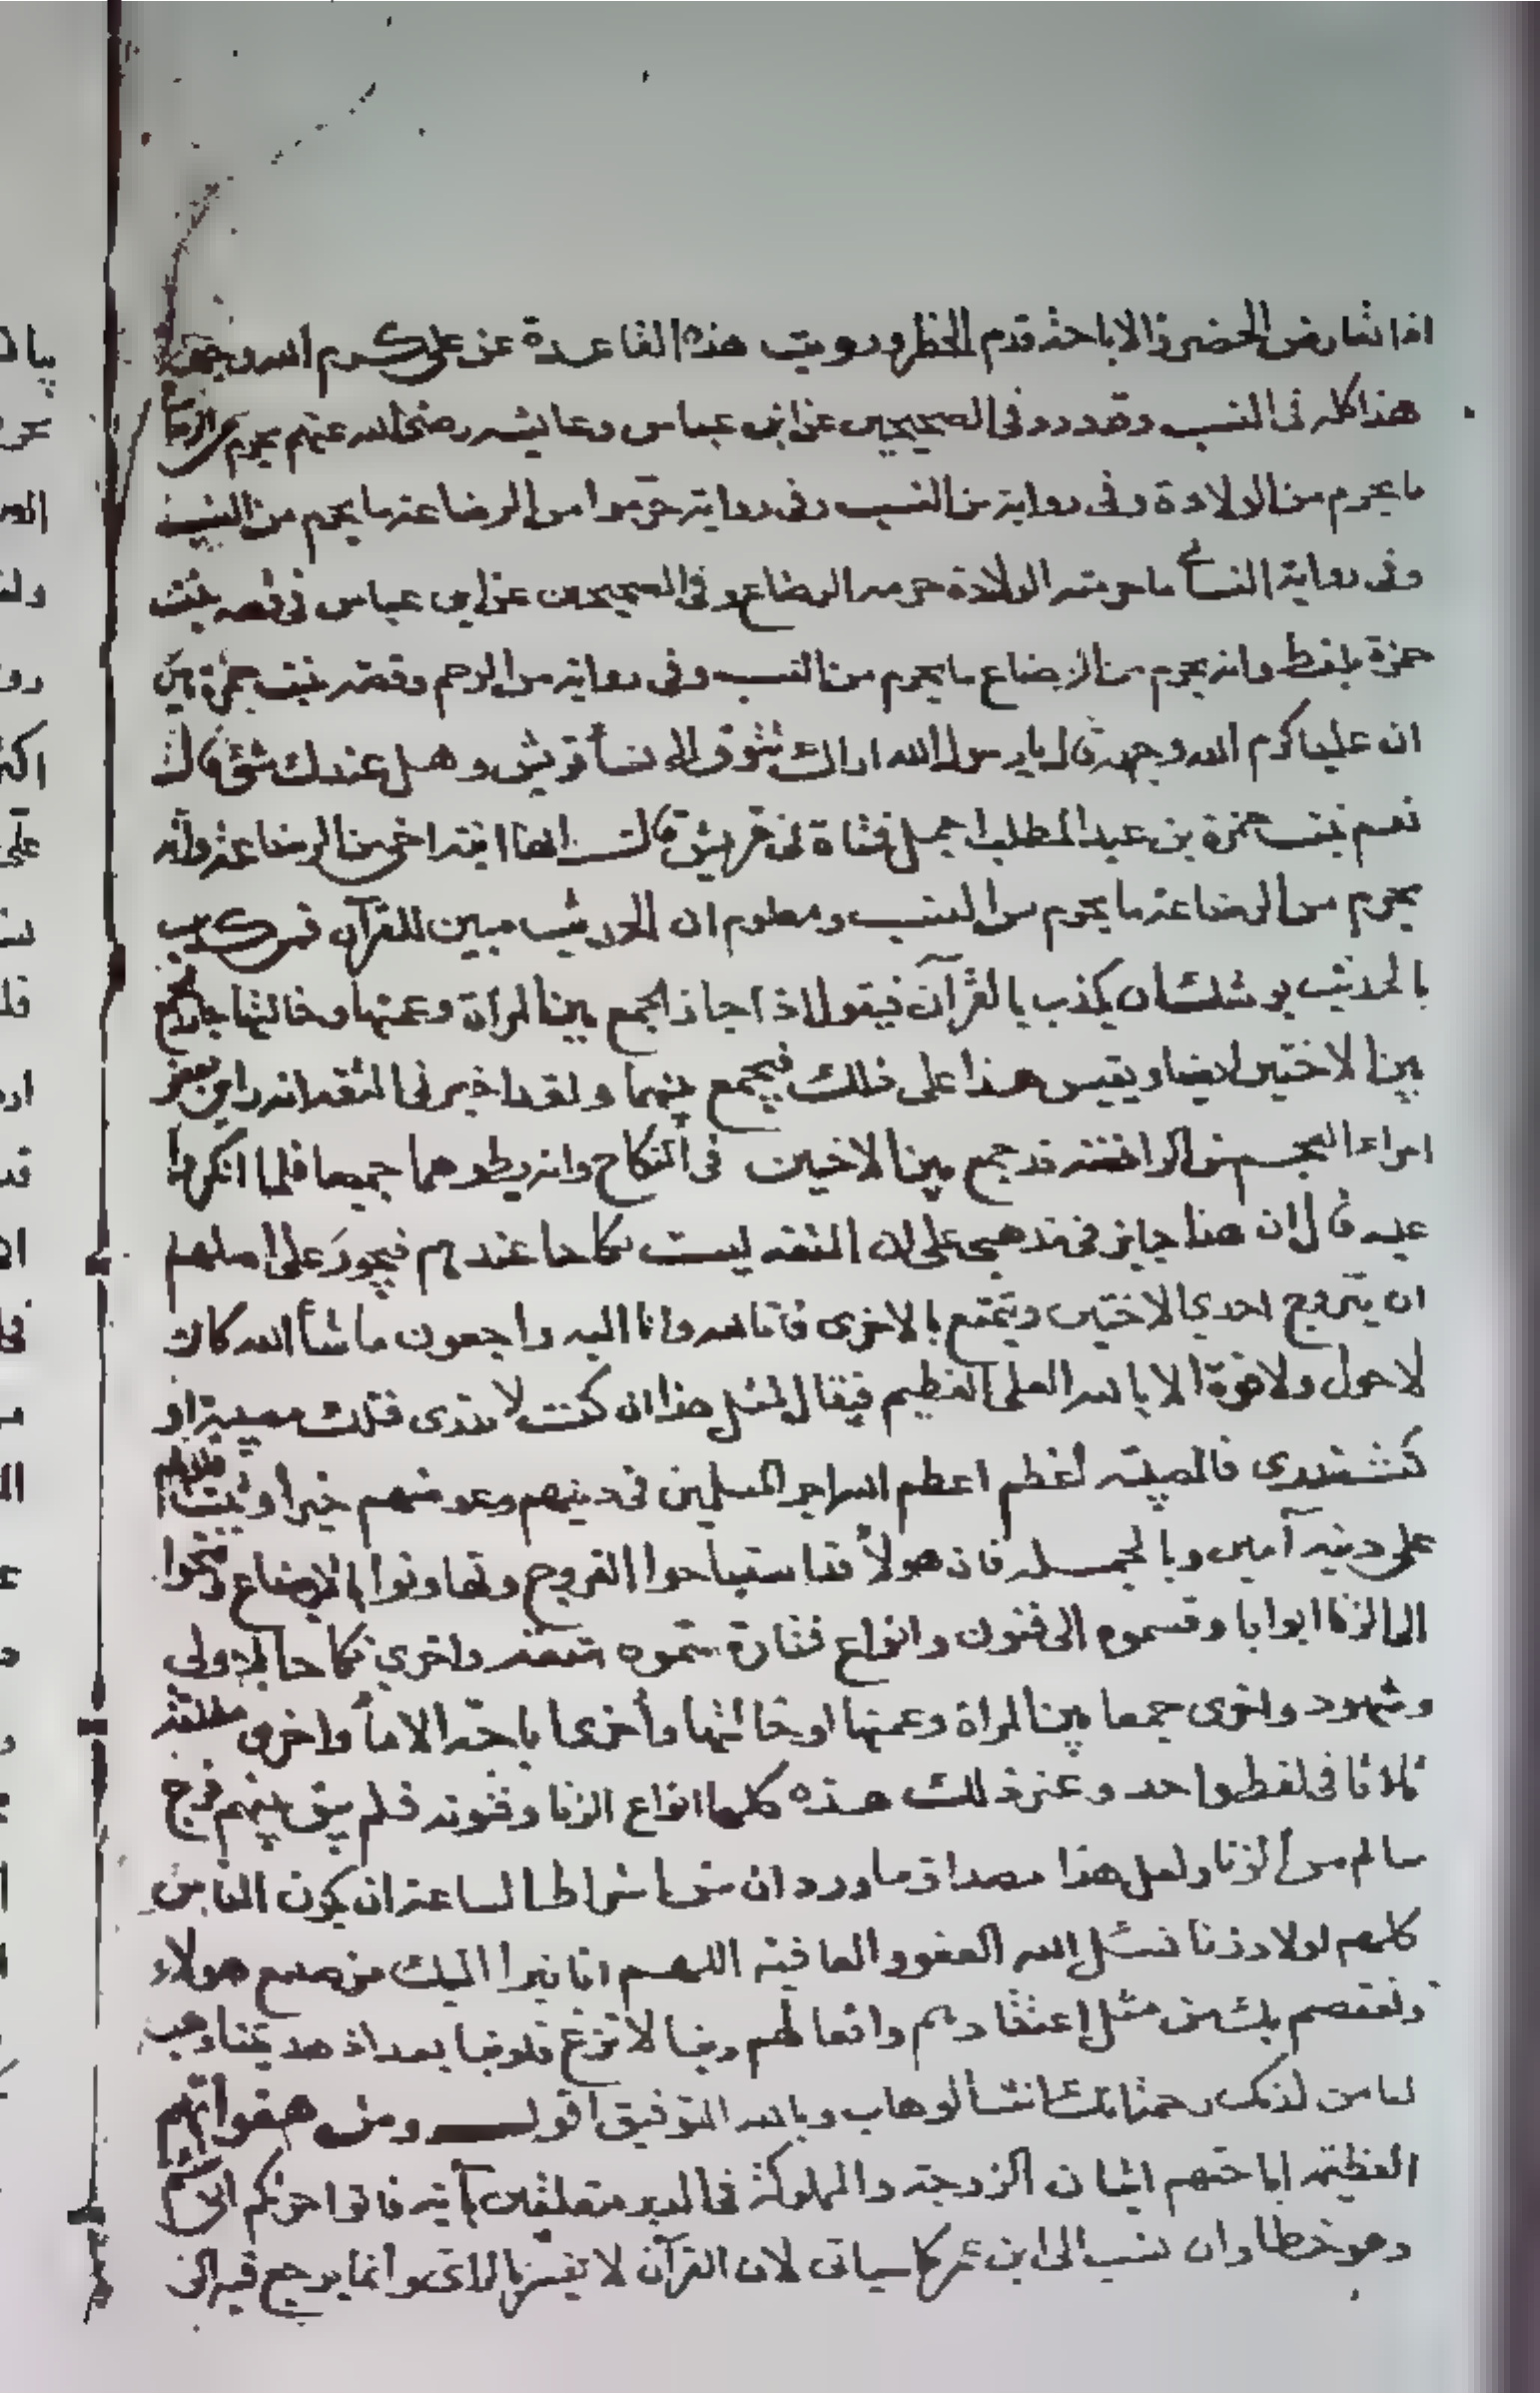 اذا تعارض الحضر والاباحة قدم الحظر ورويت هذه القاعدة عن علي كرم الله وجهه
هذا كله فى النسب وقد ورد فى الصحيحين عن ابن عباس وعايشه رضى الله عنهم يحرم من الرضاع
ما يحرم من الولادة وفى رواية من النسب وفى رواية حرموا من الرضاعة ما يحرم من النسب
وفى رواية النسائى ما حرمته الولادة حرمه الرضاع وفى الصحيحين عن ابن عباس فى قصه بنت
حمزة بلفظ وانه يحرم من الرضاع ما يحرم من النسب وفى رواية من الرحم وقصة بنت حمزة هى
ان عليا كرم الله وجهه قال يا رسول الله اراك تتوق الى نسأ قريش وهل عندك شئ قال
نعم بنت حمزة بن عبد المطلب اجمل فتاة فى قريش قالـــ انها ابنة اخى من الرضاعة وانه
يحرم من الرضاعة ما يحرم من النسب ومعلوم ان الحديث مبين للقرآن فمن كذب
بالحديث يوشك ان يكذب بالقرآن فيقول اذا جاز الجمع بين المرأة وعمتها وخالتها جاز الجمع
بين الاختين ايضا ويقيس هذا على ذلك فيجمع بينهما ولقد اخبرنى الثقة انه راى بعض
امراء العجم من الرافضة قد جمع بين الاختين فى النكاح وانه يطوهما جميعا فلما انكر هذا
عليه قال ان هذا جايز فى مذهبى على ان المتعه ليست نكاحا عندهم فيجوز على اصلهم
ان يتزوج احدي الاختين ويتمتع بالاخرى فانا لله وانا اليه راجعون ما شأ الله كان
لا حول ولا قوة الا بالله العلى العظيم فيقال لمثل هذا ان كنت لا تدرى فتلك مصيبة او
كنت تدرى فالمصيبة اعظم اعظم الله اجر المسلمين فى دينهم وعوضهم خيرا وثبت قلوبهم
على دينه آمين وبالجمـــله فان هولأ قد استباحوا الفروج وتهاونوا بالابضاع وفتحوا
الى الزنا ابوابا وقسموه الى فنون وانواع فتارة سموه متعة واخري نكاحا بلا ولي
وشهود واخرى جمعا بين المراة وعمتها او خالتها وأخرى اباحة الامأ واخرى مطلقة
ثلاثا فى لفظ واحد وغير ذلك هذه كلها انواع الزنا وفنونه فلم يبق بينهم فرج
سالم من الزنا ولعل هذا مصداق ما ورد ان من اشراط الساعة ان يكون الناس
كلهم اولاد زنا نسئل الله العفو والعافية اللهم انا نبرا اليك من صنع هولاء
ونعتصم بك من مثل اعتقادهم وافعالهم ربنا لا تزغ قلوبنا بعد اذ هديتنا وهب
لنا من لدنك رحمة انك انت الوهاب وبالله التوفيق اقولـــ ومن هفواتهم
العظيمة اباحتهم اتيان الزوجة والمملوكة فى الدبر متعلقين بآية فاتوا حرثكم انى شئتم
وهو خطا وان نسب الى ابن عمر كما سياتى لان القرآن لا يفسر بالراى وانما يرجع فيه الى